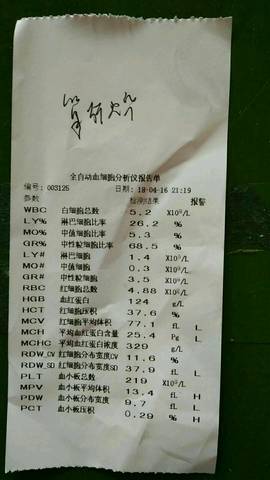 全自动血细胞分析仪报告单
编号: 003125 日期: 18-04-16 21:19
参数 检测结果 报警
WBC 白细胞总数 5.2 X10⁹/L
LY% 淋巴细胞比率 26.2 %
MO% 中值细胞比率 5.3 %
GR% 中性粒细胞比率 68.5 %
LY# 淋巴细胞 1.4 X10⁹/L
MO# 中值细胞 0.3 X10⁹/L
GR# 中性粒细胞 3.5 X10⁹/L
RBC 红细胞总数 4.88
HGB 血红蛋白 124 g/L
HCT 红细胞压积 37.6 %
MCV 红细胞平均体积 77.1 fL L
MCH 平均血红蛋白含量 25.4 Pg L
MCHC 平均血红蛋白浓度 329 g/L
RDW_CV 红细胞分布宽度CV 11.6 %
RDW_SD 红细胞分布宽度SD 37.9 fL L
PLT 血小板总数 219 X10⁹/L
MPV 血小板平均体积 13.4 fL H
PDW 血小板分布宽度 9.7 fL L
PCT 血小板压积 0.29 % H